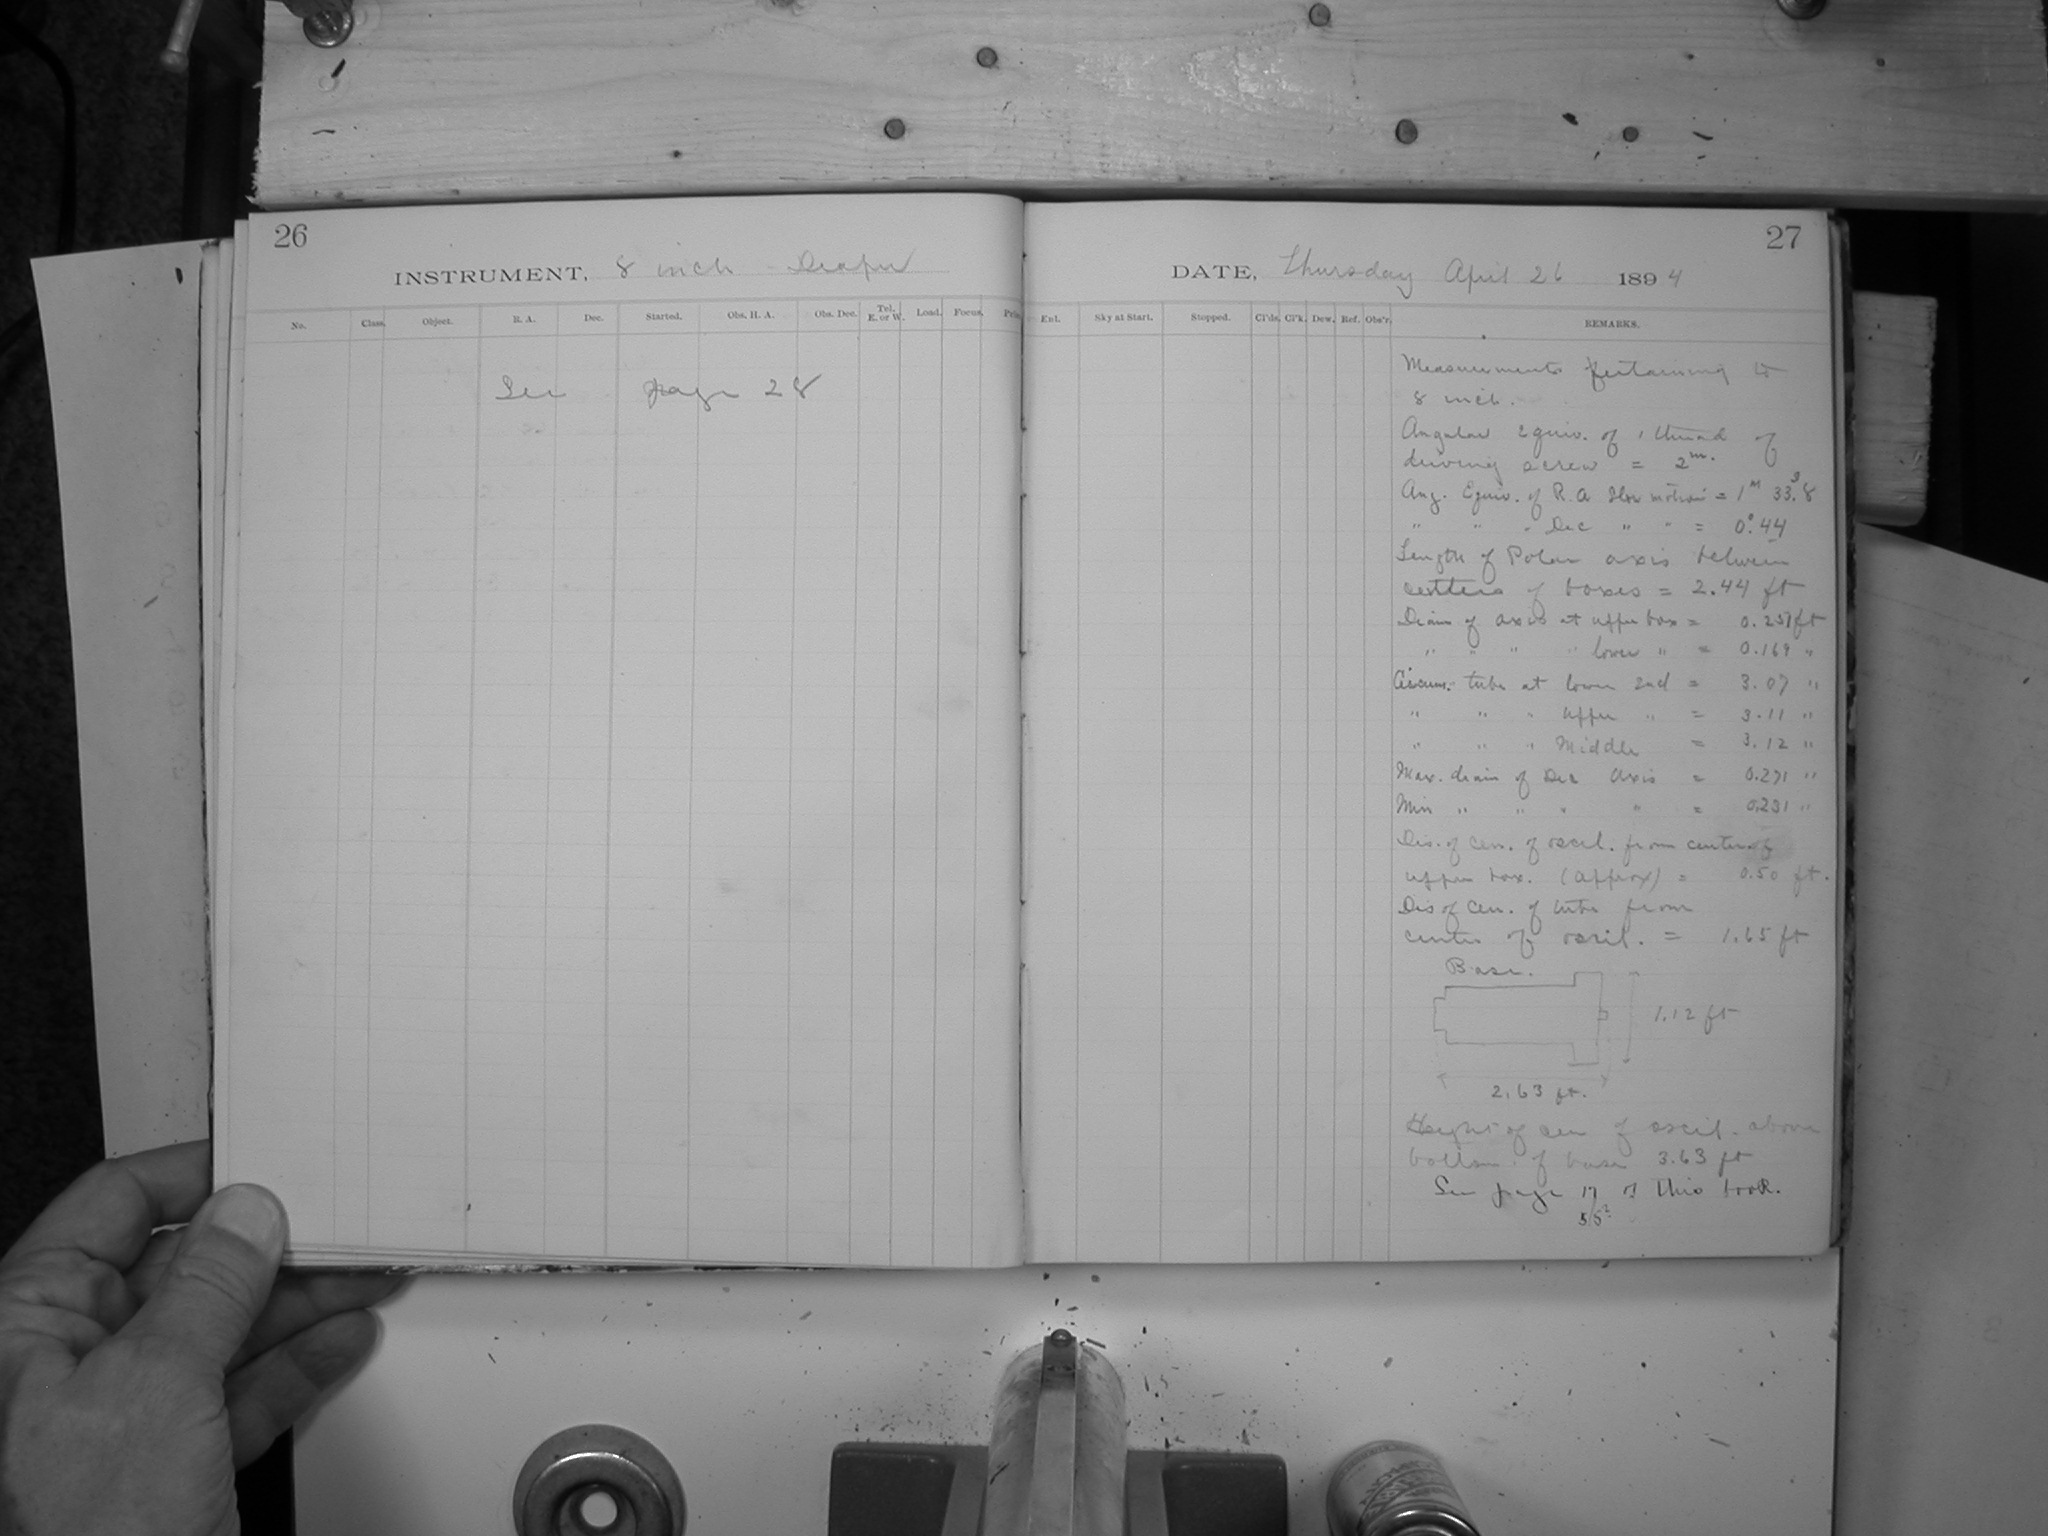 26
INSTRUMENT, 8 inch Draper
No. Class. Object. R. A. Dec. Started. Obs. H. A. Obs. Dec. Tel. E. or W. Load. Focus.
See page 28
27
DATE, Thursday April 26 1894
Ent. Sky at Start. Stopped. Cl'ds. Cl'k. Dew. Ref. Obs'r. REMARKS.
Measurements pertaining to
8 inch.
Angular Equiv. of 1 thread of
driving screw = 2m.
Ang. Equiv. of R.A slow motion = 1m 33s.8
" " " Dec " " = 0°.44
Length of Polar axis between
centers of boxes = 2.44 ft
Diam of axis at upper box = 0.251 ft
" " " " lower " = 0.169 "
Circum. tube at lower end = 3.07 "
" " " Upper " = 3.11 "
" " " Middle = 3.12 "
Max. diam of Dec Axis = 0.271 "
Min " " " " = 0.231 "
Dis. of cen. of oscil. from center of
upper box. (approx) = 0.50 ft.
Dis of cen. of tube from
center of oscil. = 1.65 ft
Base.
1.12 ft
2.63 ft.
Height of cen of oscil. above
bottom of base 3.63 ft
See page 17 of this book.